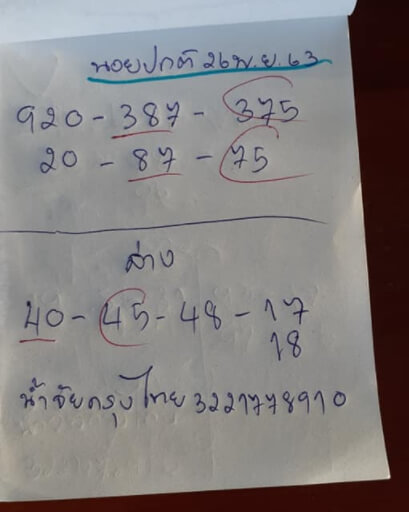 ฮอยปกติ 26 พ.ย. 63
920 - 387 - 375
20 - 87 - 75
ล่าง
40 - 45 - 48 - 17
18
น้ำใจกรุงไทย 3221778910